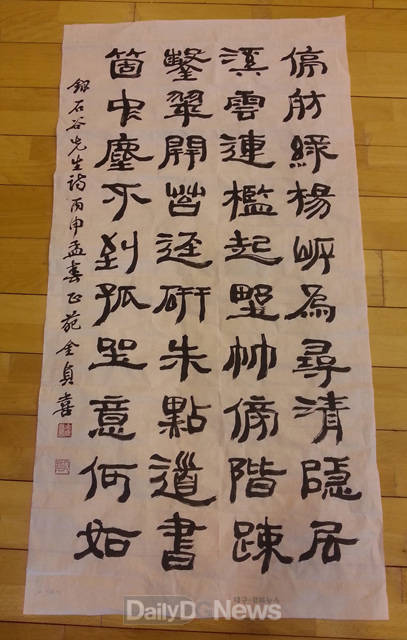 停舫綠楊岸爲尋清隱居
溪雲連檻起野竹傍階疎
鑿翠開苔逕研朱點道書
箇中塵不到孤坐意何如
錄石谷先生詩丙申孟春正苑金貞喜
DailyDgNews